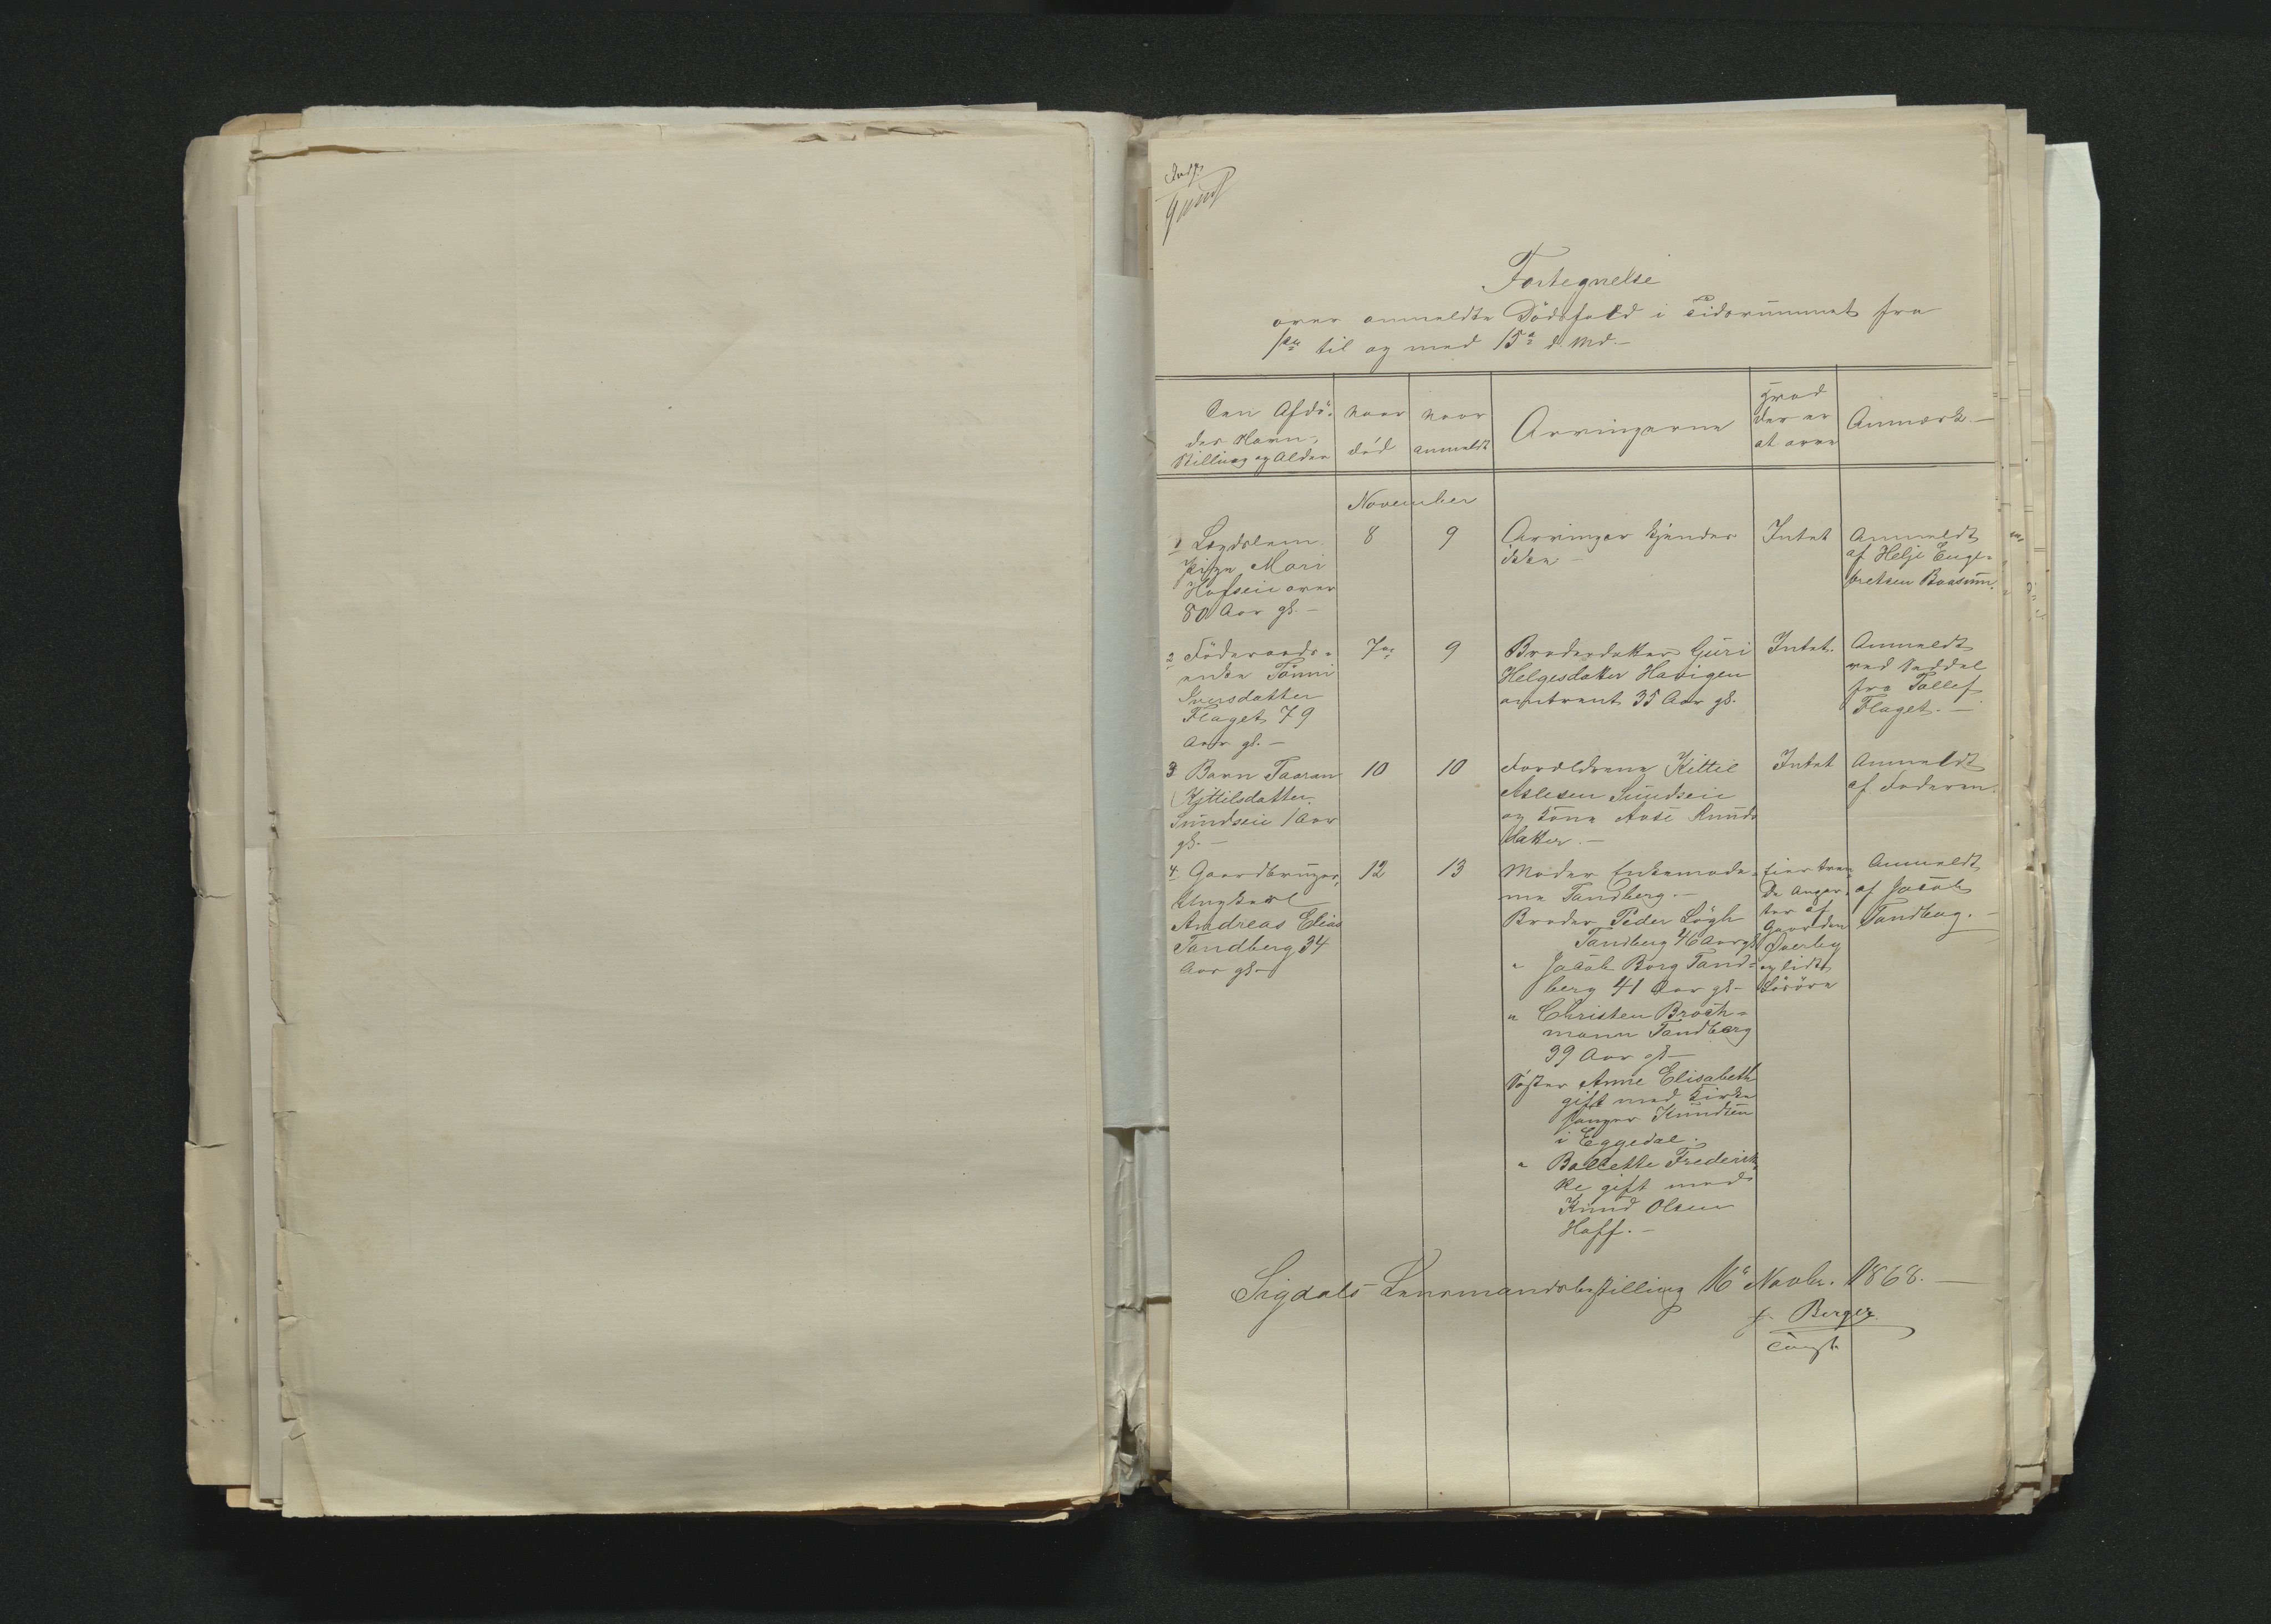 Fortegnelse
over anmeldte Dödsfald i Tidsrummet fra
1ste til og med 15de d. Md. –
Den Afdö-
des Navn,
Stilling og Alder
naar
död
naar
anmeldt
Arvingerne
Hvad
der er
at arve
Anmærk. –
November
1 Lægdslem
Pige Mari
Hofseie over
80 Aar gl. –
8
9
Arvinger kjendes
ikke –
Intet
Anmeldt
af Helje Enge-
bretsen Baasum.
2 Föderaads-
enke Tönni
Iversdatter
Flaget 79
Aar gl. –
7de
9
Broderdatter Guri
Helgesdatter Havigen
omtrent 35 Aar gl.
Intet.
Anmeldt
ved Seddel
fra Tollef
Flaget. –
3 Barn Taaran
Kittilsdatter
Sundseie 1 Aar
gl. –
10
10
Forældrene Kittil
Aslesen Sundseie
og Kone Aase Knuds
datter. –
Intet
Anmeldt
af Faderen.
4 Gaardbruger,
Ungkarl
Andreas Elias
Tandberg 34
Aar gl. –
12
13
Moder Enkemada-
me Tandberg. –
Broder Peder Lögh
Tandberg 46 Aar gl
" Jacob Borg Tand-
berg 41 Aar gl –
" Christen Broch-
mann Tandberg
39 Aar gl –
Söster Anne Elisabeth
gift med Kirke
sanger Knudsen
i Eggedal.
" Bollette Frederik
ke gift med
Knud Olsen
Hoff. –
Eier tre
af
Gaarden
Överby
og lidt
Lösöre
Anmeldt
af Jacob
Tandberg. –
Sigdals Lensmandsbestilling 16de Novbr. 1868. –
Berger
Const.